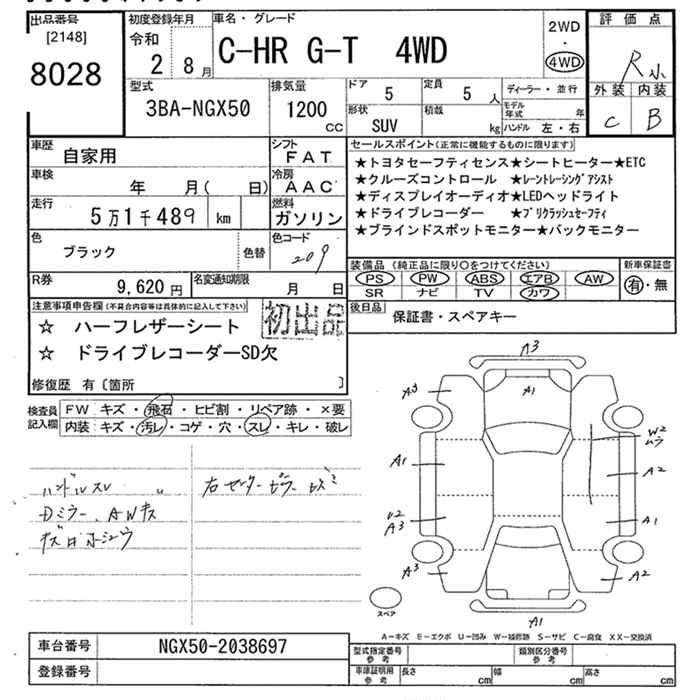 出品番号
[2148]
8028
初度登録年月
令和
2 8月
車名・グレード
C-HR G-T 4WD
2WD
・
4WD
評価点
R
外装 内装
C B
型式
3BA-NGX50
排気量
1200
cc
ドア
5
定員
5 人
形状
SUV
積載
kg
ディーラー・並行
モデル年式 年
ハンドル 左・右
車歴
自家用
シフト
FAT
車検
年 月( 日)
冷房
AAC
走行
5万1千489 km
燃料
ガソリン
色
ブラック
色替
色コード
209
R券
9,620円
名変通知期限
月 日
セールスポイント(正常に機能するものに限ります)
★トヨタセーフティセンス★シートヒーター★ETC
★クルーズコントロール ★レーントレーシングアシスト
★ディスプレイオーディオ★LEDヘッドライト
★ドライブレコーダー ★プリクラッシュセーフティ
★ブラインドスポットモニター★バックモニター
装備品(純正品に限り〇をつけてください)
PS PW ABS エアB AW
SR ナビ TV カワ
新車保証書
有・無
後日品
保証書・スペアキー
注意事項申告欄(不具合内容等は具体的に記入して下さい)
初出品
☆ ハーフレザーシート
☆ ドライブレコーダーSD欠
修復歴 有〔箇所 〕
検査員記入欄
FW キズ・飛石・ヒビ割・リペア跡・×要
内装 キズ・汚レ・コゲ・穴・スレ・キレ・破レ
ハンドルスレ
Dミラー、AWキズ
A3
A1
A3
A3
W2
ムラ
A1
A2
U2
A3
A1
A3
A2
A1
スペア
A-キズ E-エクボ U-凹み W-補修跡 S-サビ C-腐食 XX-交換済
車台番号
NGX50-2038697
登録番号
型式指定番号
参考
類別区分番号
参考
車庫証明用
参考
長さ cm
幅 cm
高さ cm